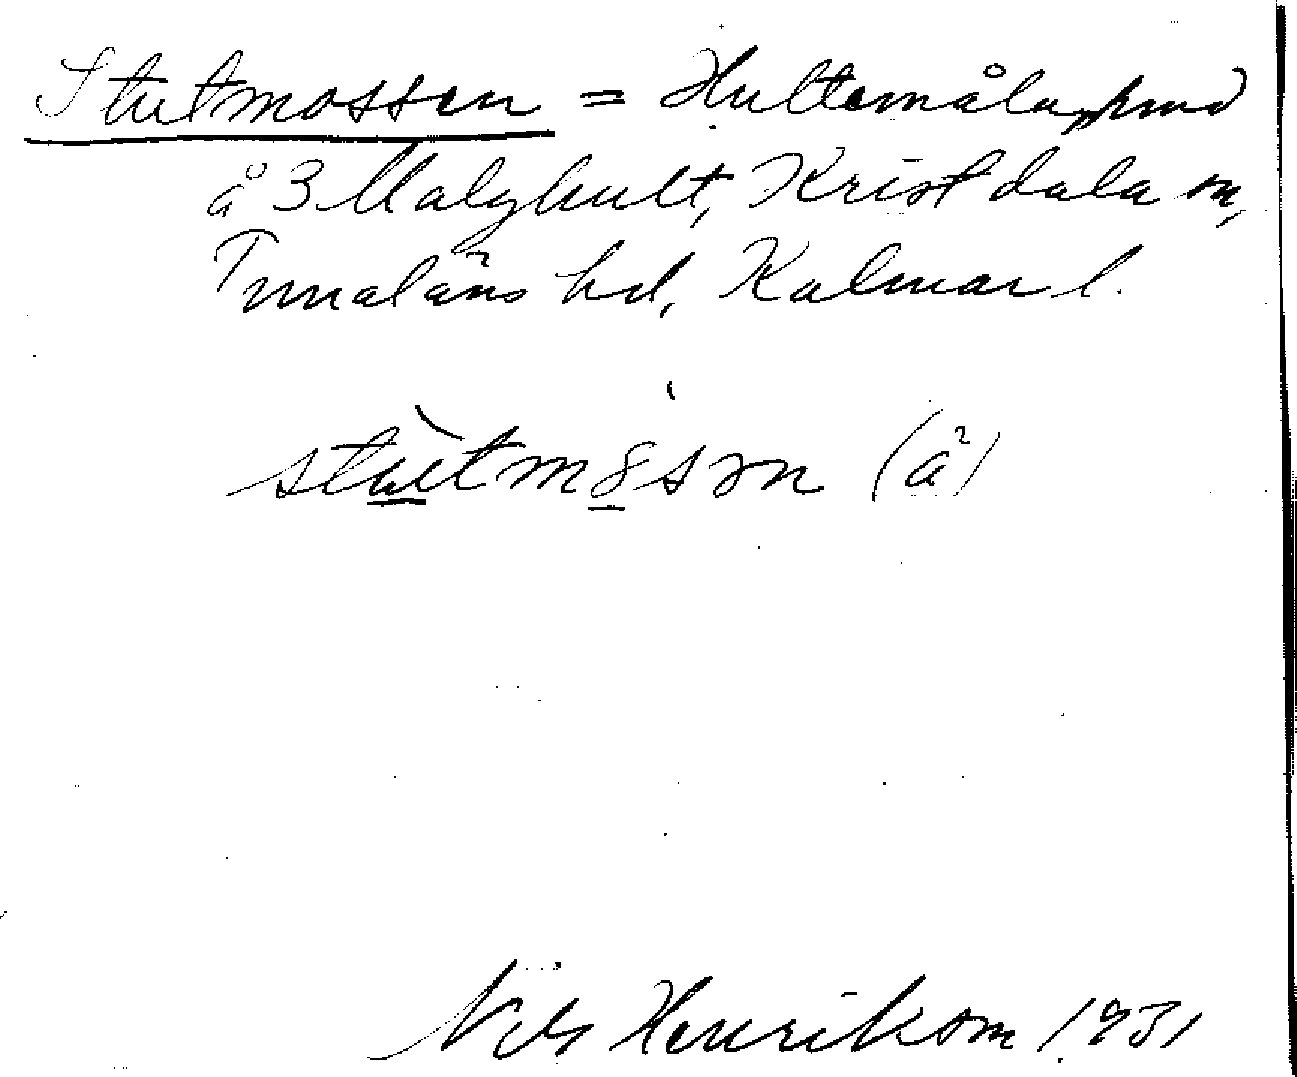 Stutmossen = Hultemåla, hmd
å 3 Malghult, Kristdala sn,
Tunaläns hd, Kalmar l.
stùtmósən (a²)
Nils Henrikson 1931